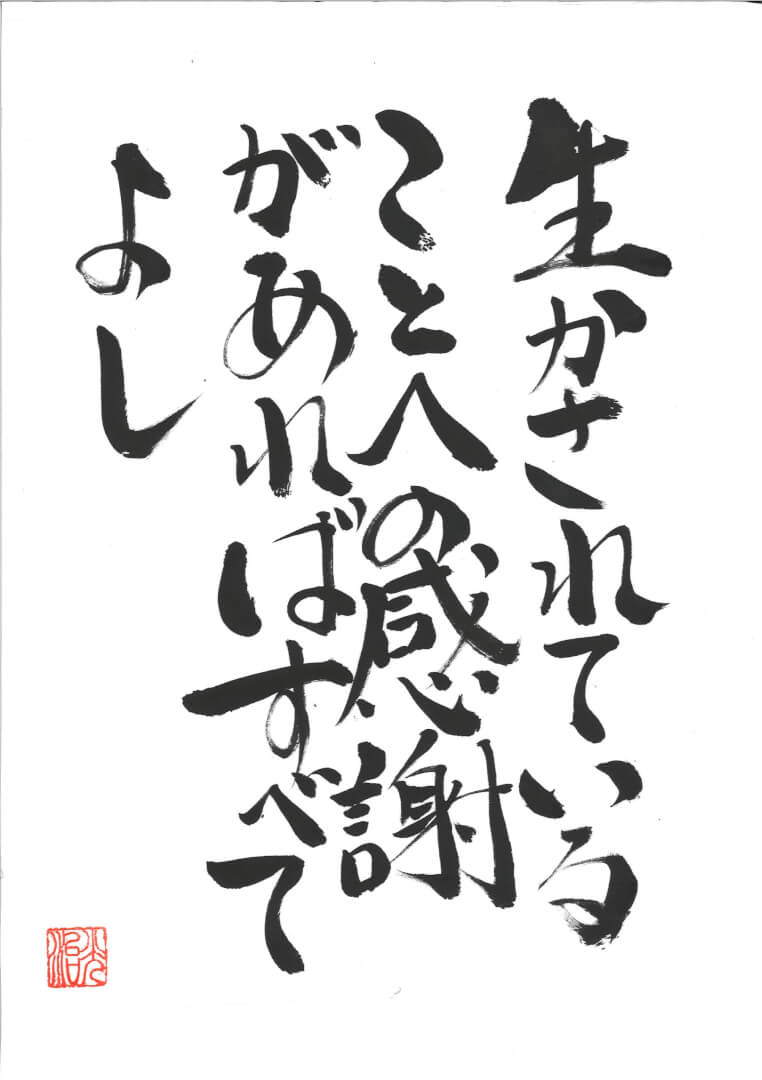 生かされている
ことへの感謝
があればすべて
よし